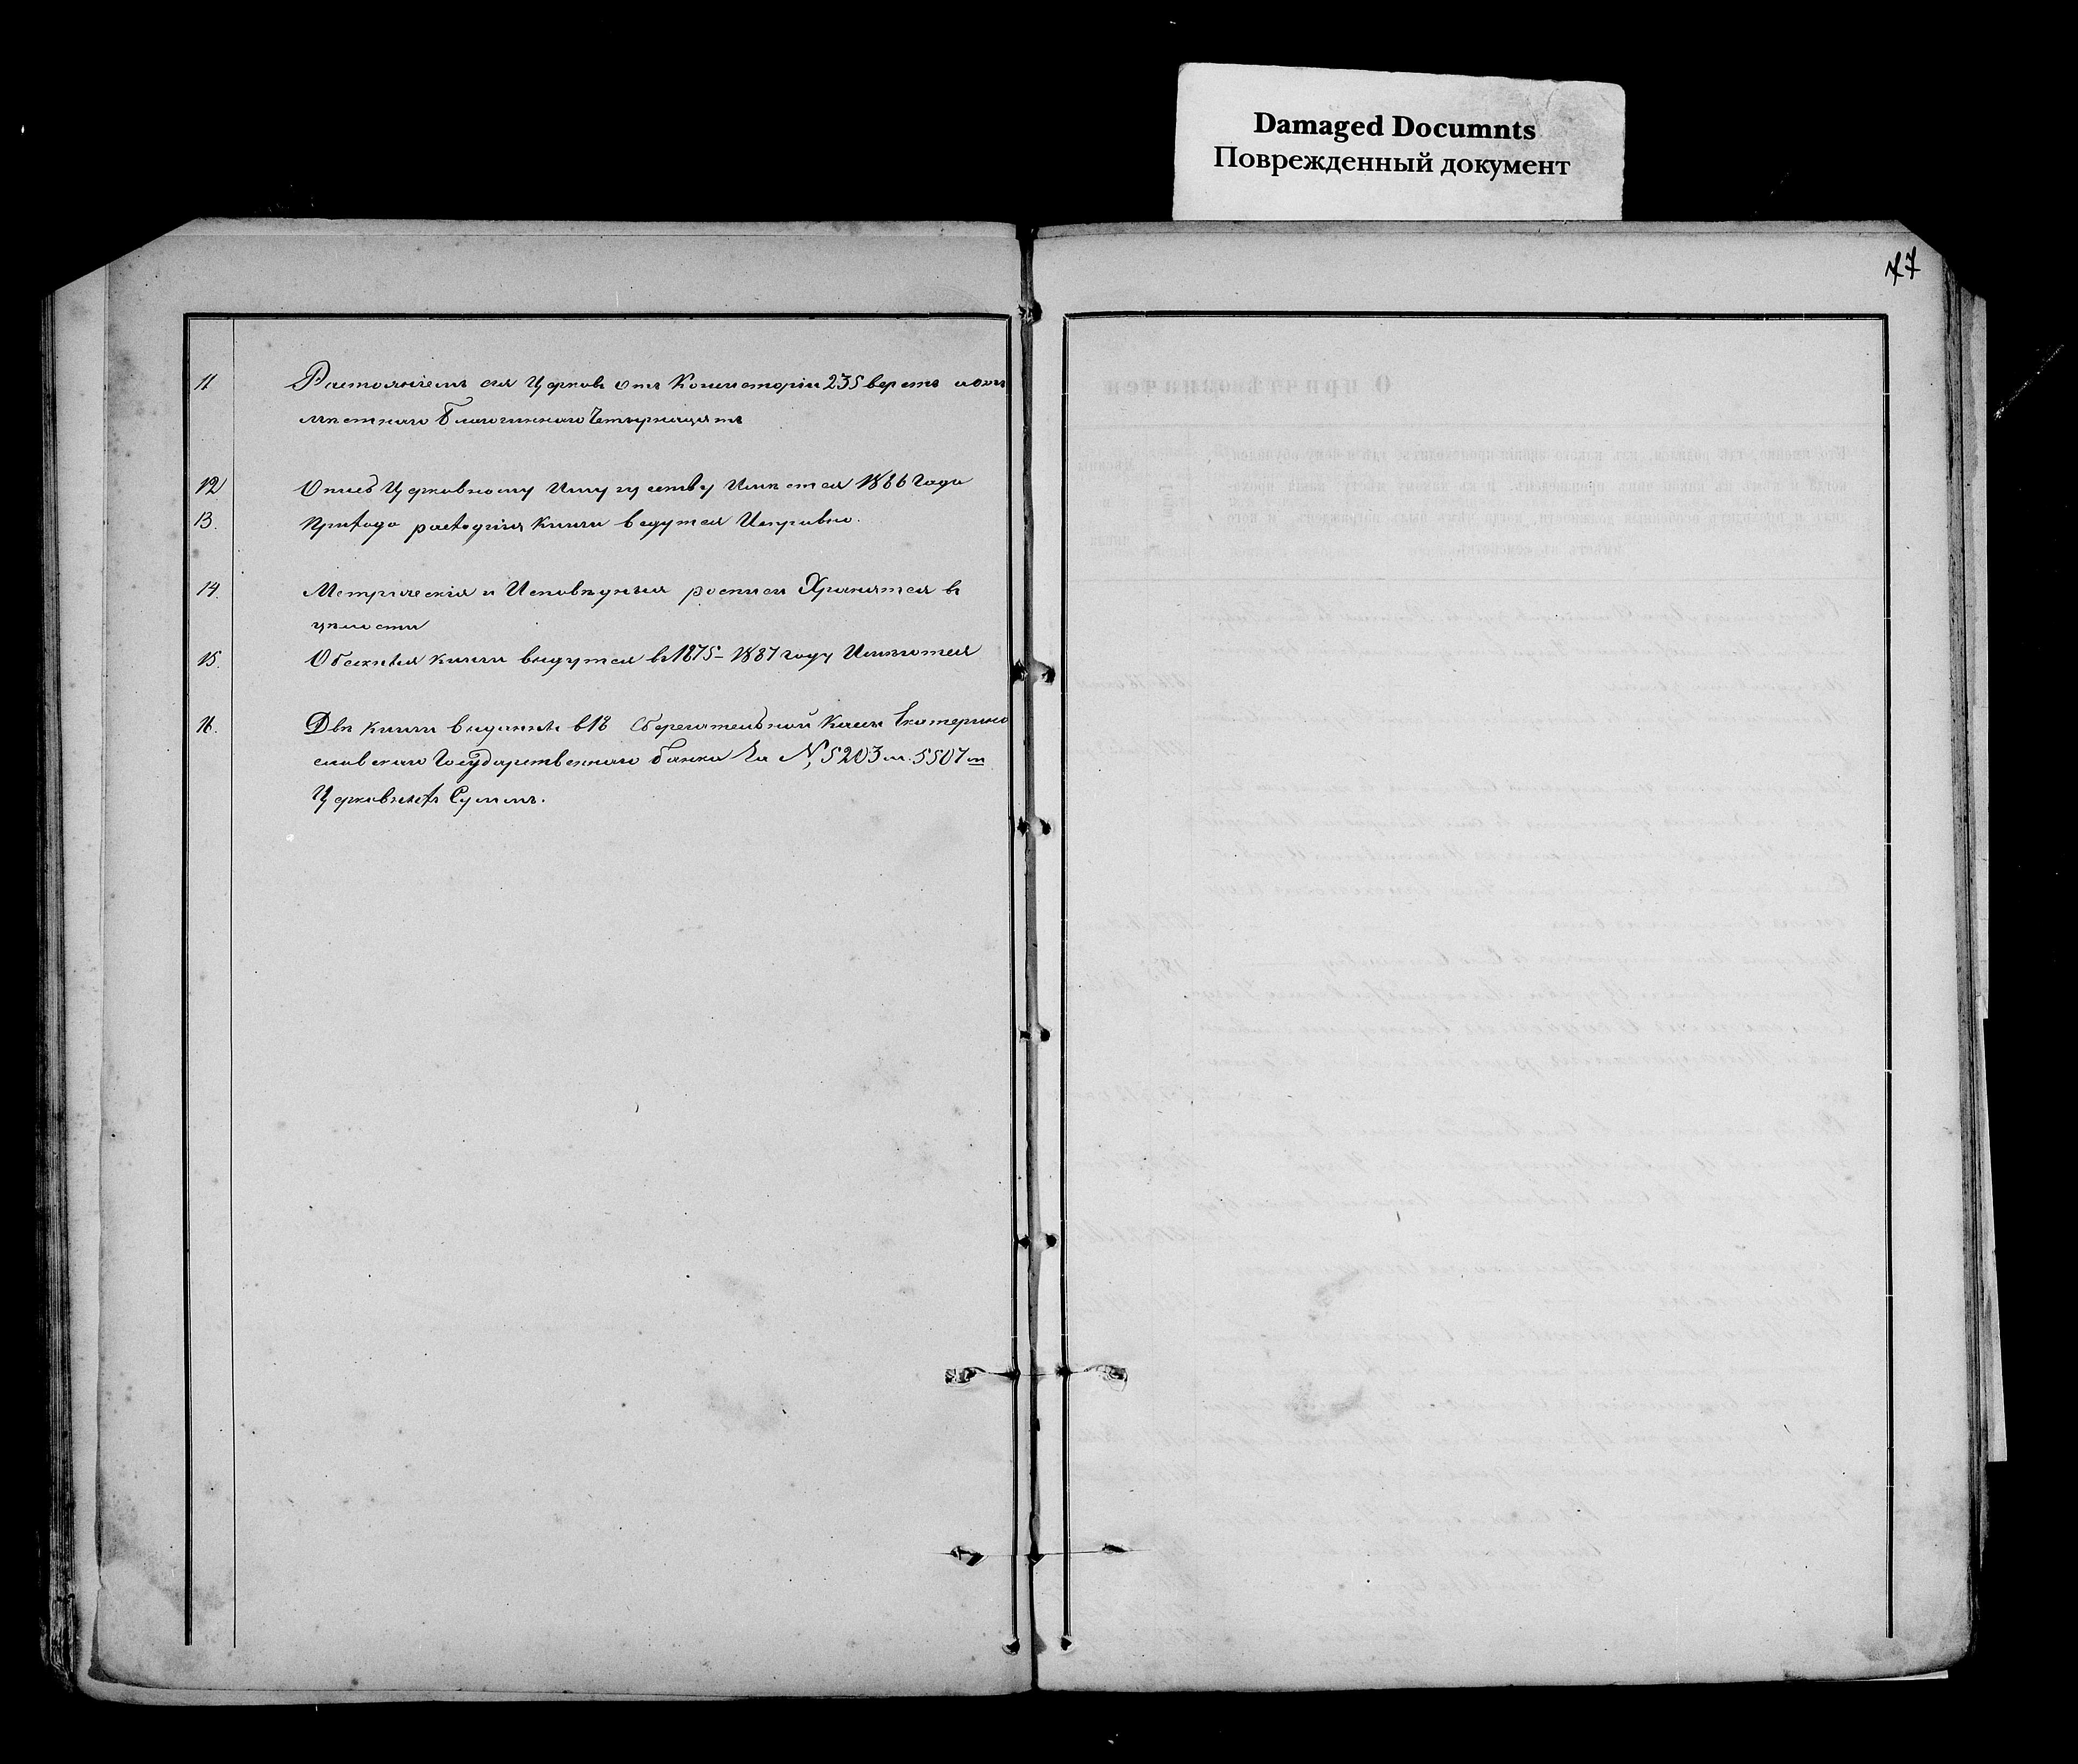 Damaged Documnts
Поврежденный документ
77
11 Растояніемъ сія Церковь отъ Консисторіи 235 верстъ
мѣстнаго Благочиннаго Четырнадцать
12 Опись Церковному Имуществу Имѣется 1886 Года
13. Приходо расходнія книги ведутся Исправно.
14. Метрическія и Исповѣдныя росписи Хранятся въ
цѣлости
15. Обскнія книги ведутся въ 1875-1887 году Имѣются
16. Двѣ книги виданые въ 18 Сберегательной Кассы Екатерино
славскаго Государственнаго банка За № 5203 и 5507 м
Церковныхъ Суммъ.